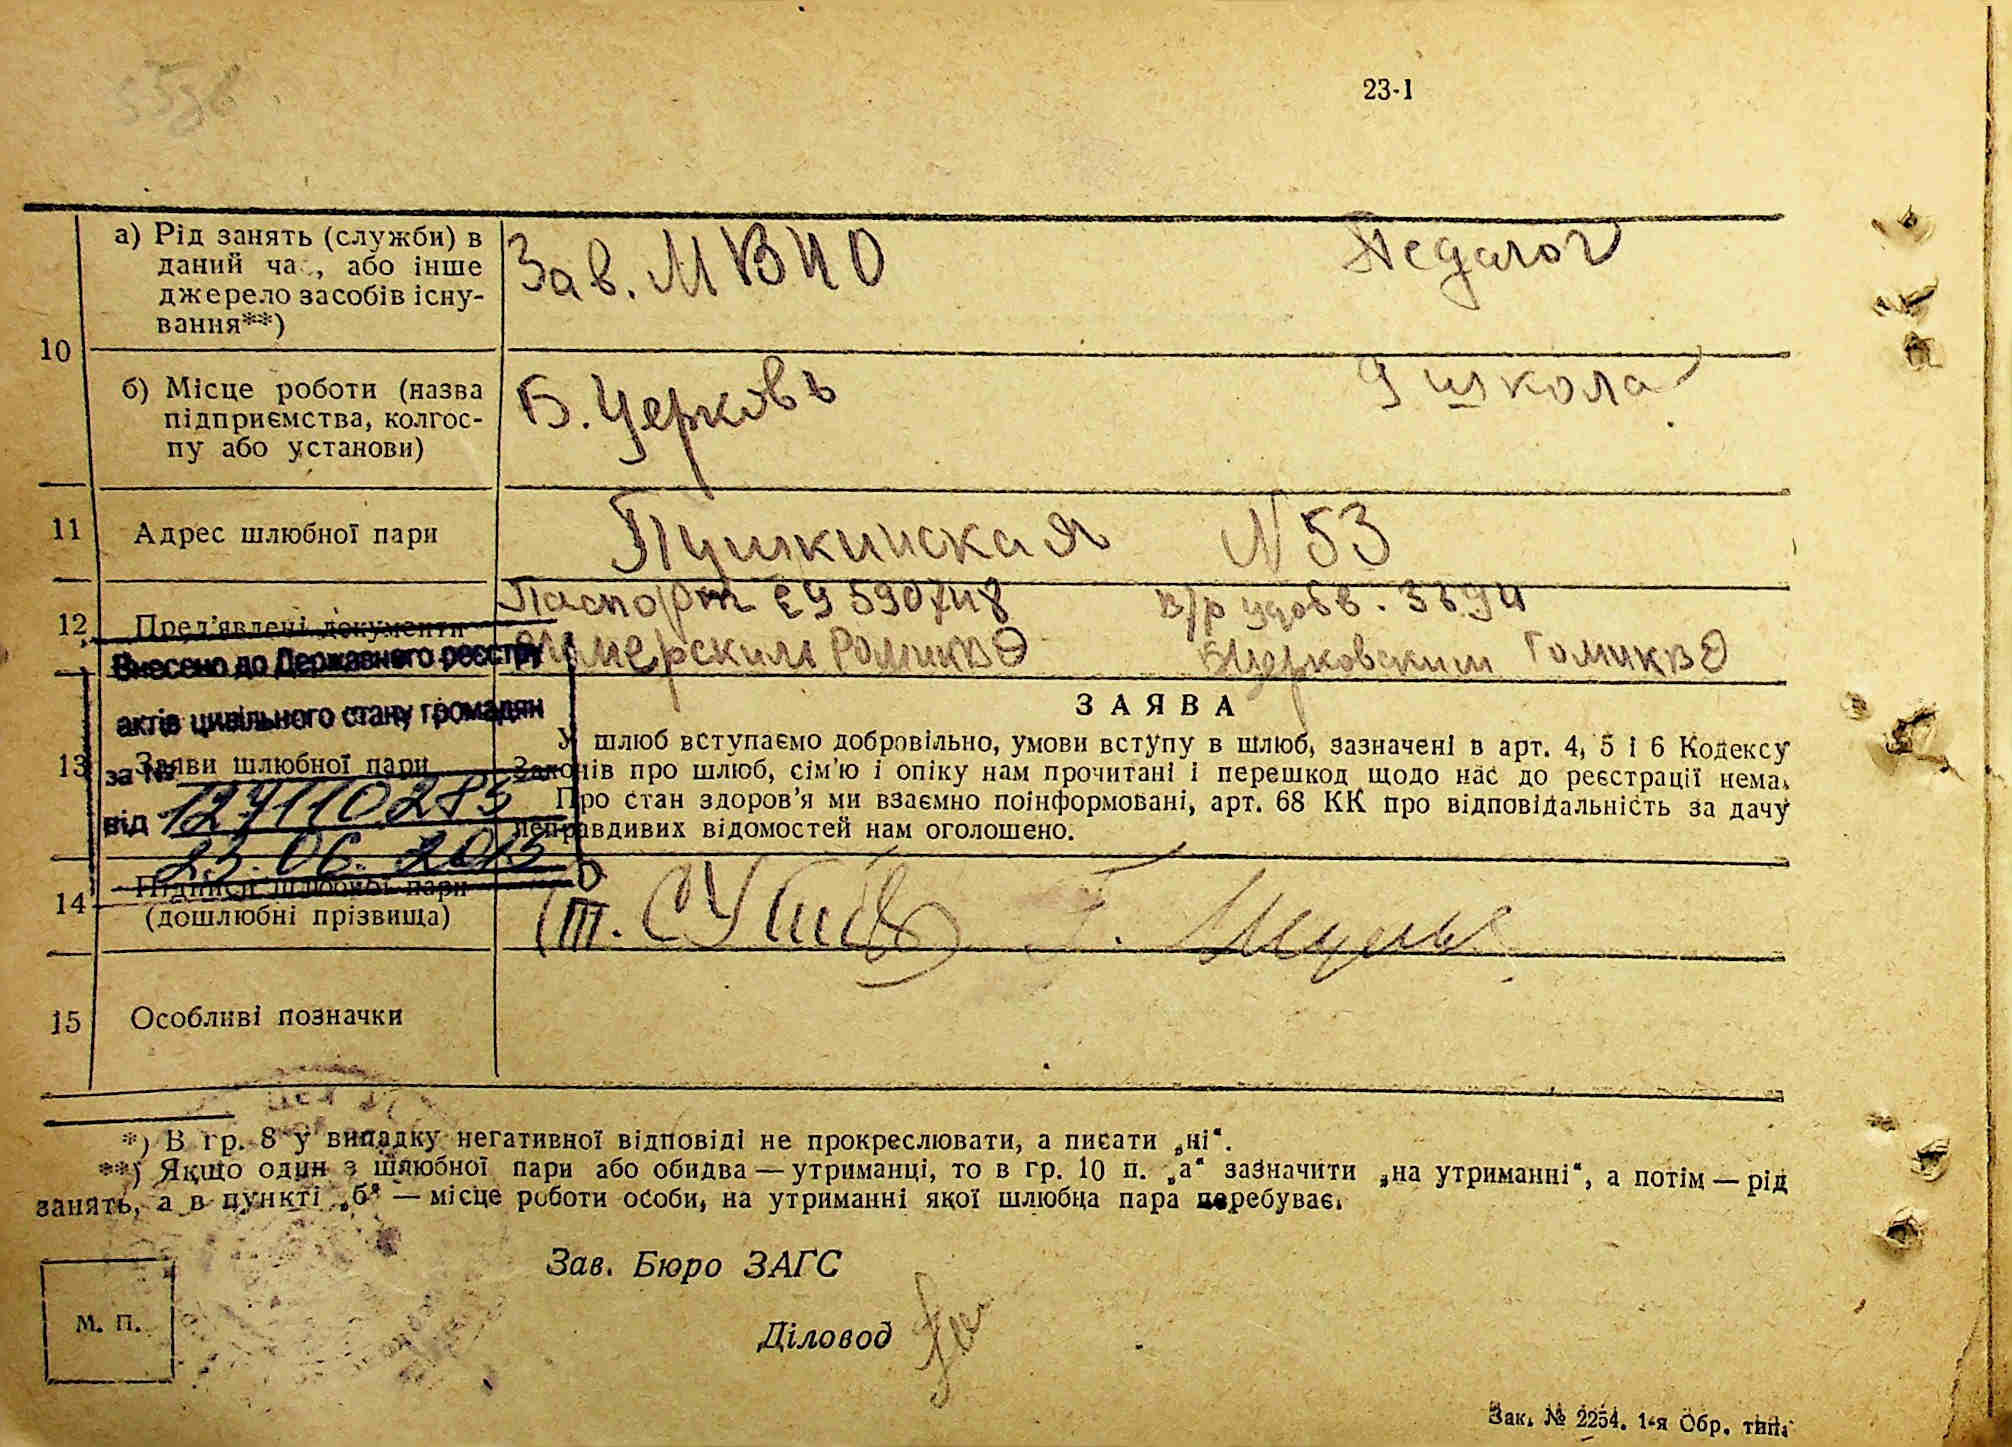 23-1
10
а) Рід занять (служби) в
даний ча , або інше
джерело засобів існу-
вання**)
Зав. МВНО
Педагог
б) Місце роботи (назва
підприємства, колгос-
пу або установи)
Б. Церковь
9 школа
11
Адрес шлюбної пари
Пушкинская N 53
12
Пред'явлені документи
Паспорт
3394
Внесено до Державного реєстру
актів цивільного стану громадян
за №
від 129110285
23. 06. 2015
13
Заяви шлюбної пари
ЗАЯВА
У шлюб вступаємо добровільно, умови вступу в шлюб, зазначені в арт. 4, 5 і 6 Кодексу
Законів про шлюб, сім'ю і опіку нам прочитані і перешкод щодо нас до реєстрації нема.
Про стан здоров'я ми взаємно поінформовані, арт. 68 КК про відповідальність за дачу
неправдивих відомостей нам оголошено.
14
Підписи шлюбної пари
(дошлюбні прізвища)
15
Особливі позначки
*) В гр. 8 у випадку негативної відповіді не прокреслювати, а писати „ні“.
**) Якщо один з шлюбної пари або обидва — утриманці, то в гр. 10 п. „а“ зазначити „на утриманні“, а потім — рід
занять, а в пункті „б“ — місце роботи особи, на утриманні якої шлюбна пара перебуває.
Зав. Бюро ЗАГС
М. П.
Діловод
Зак. № 2254. 1-я Обр. тип.